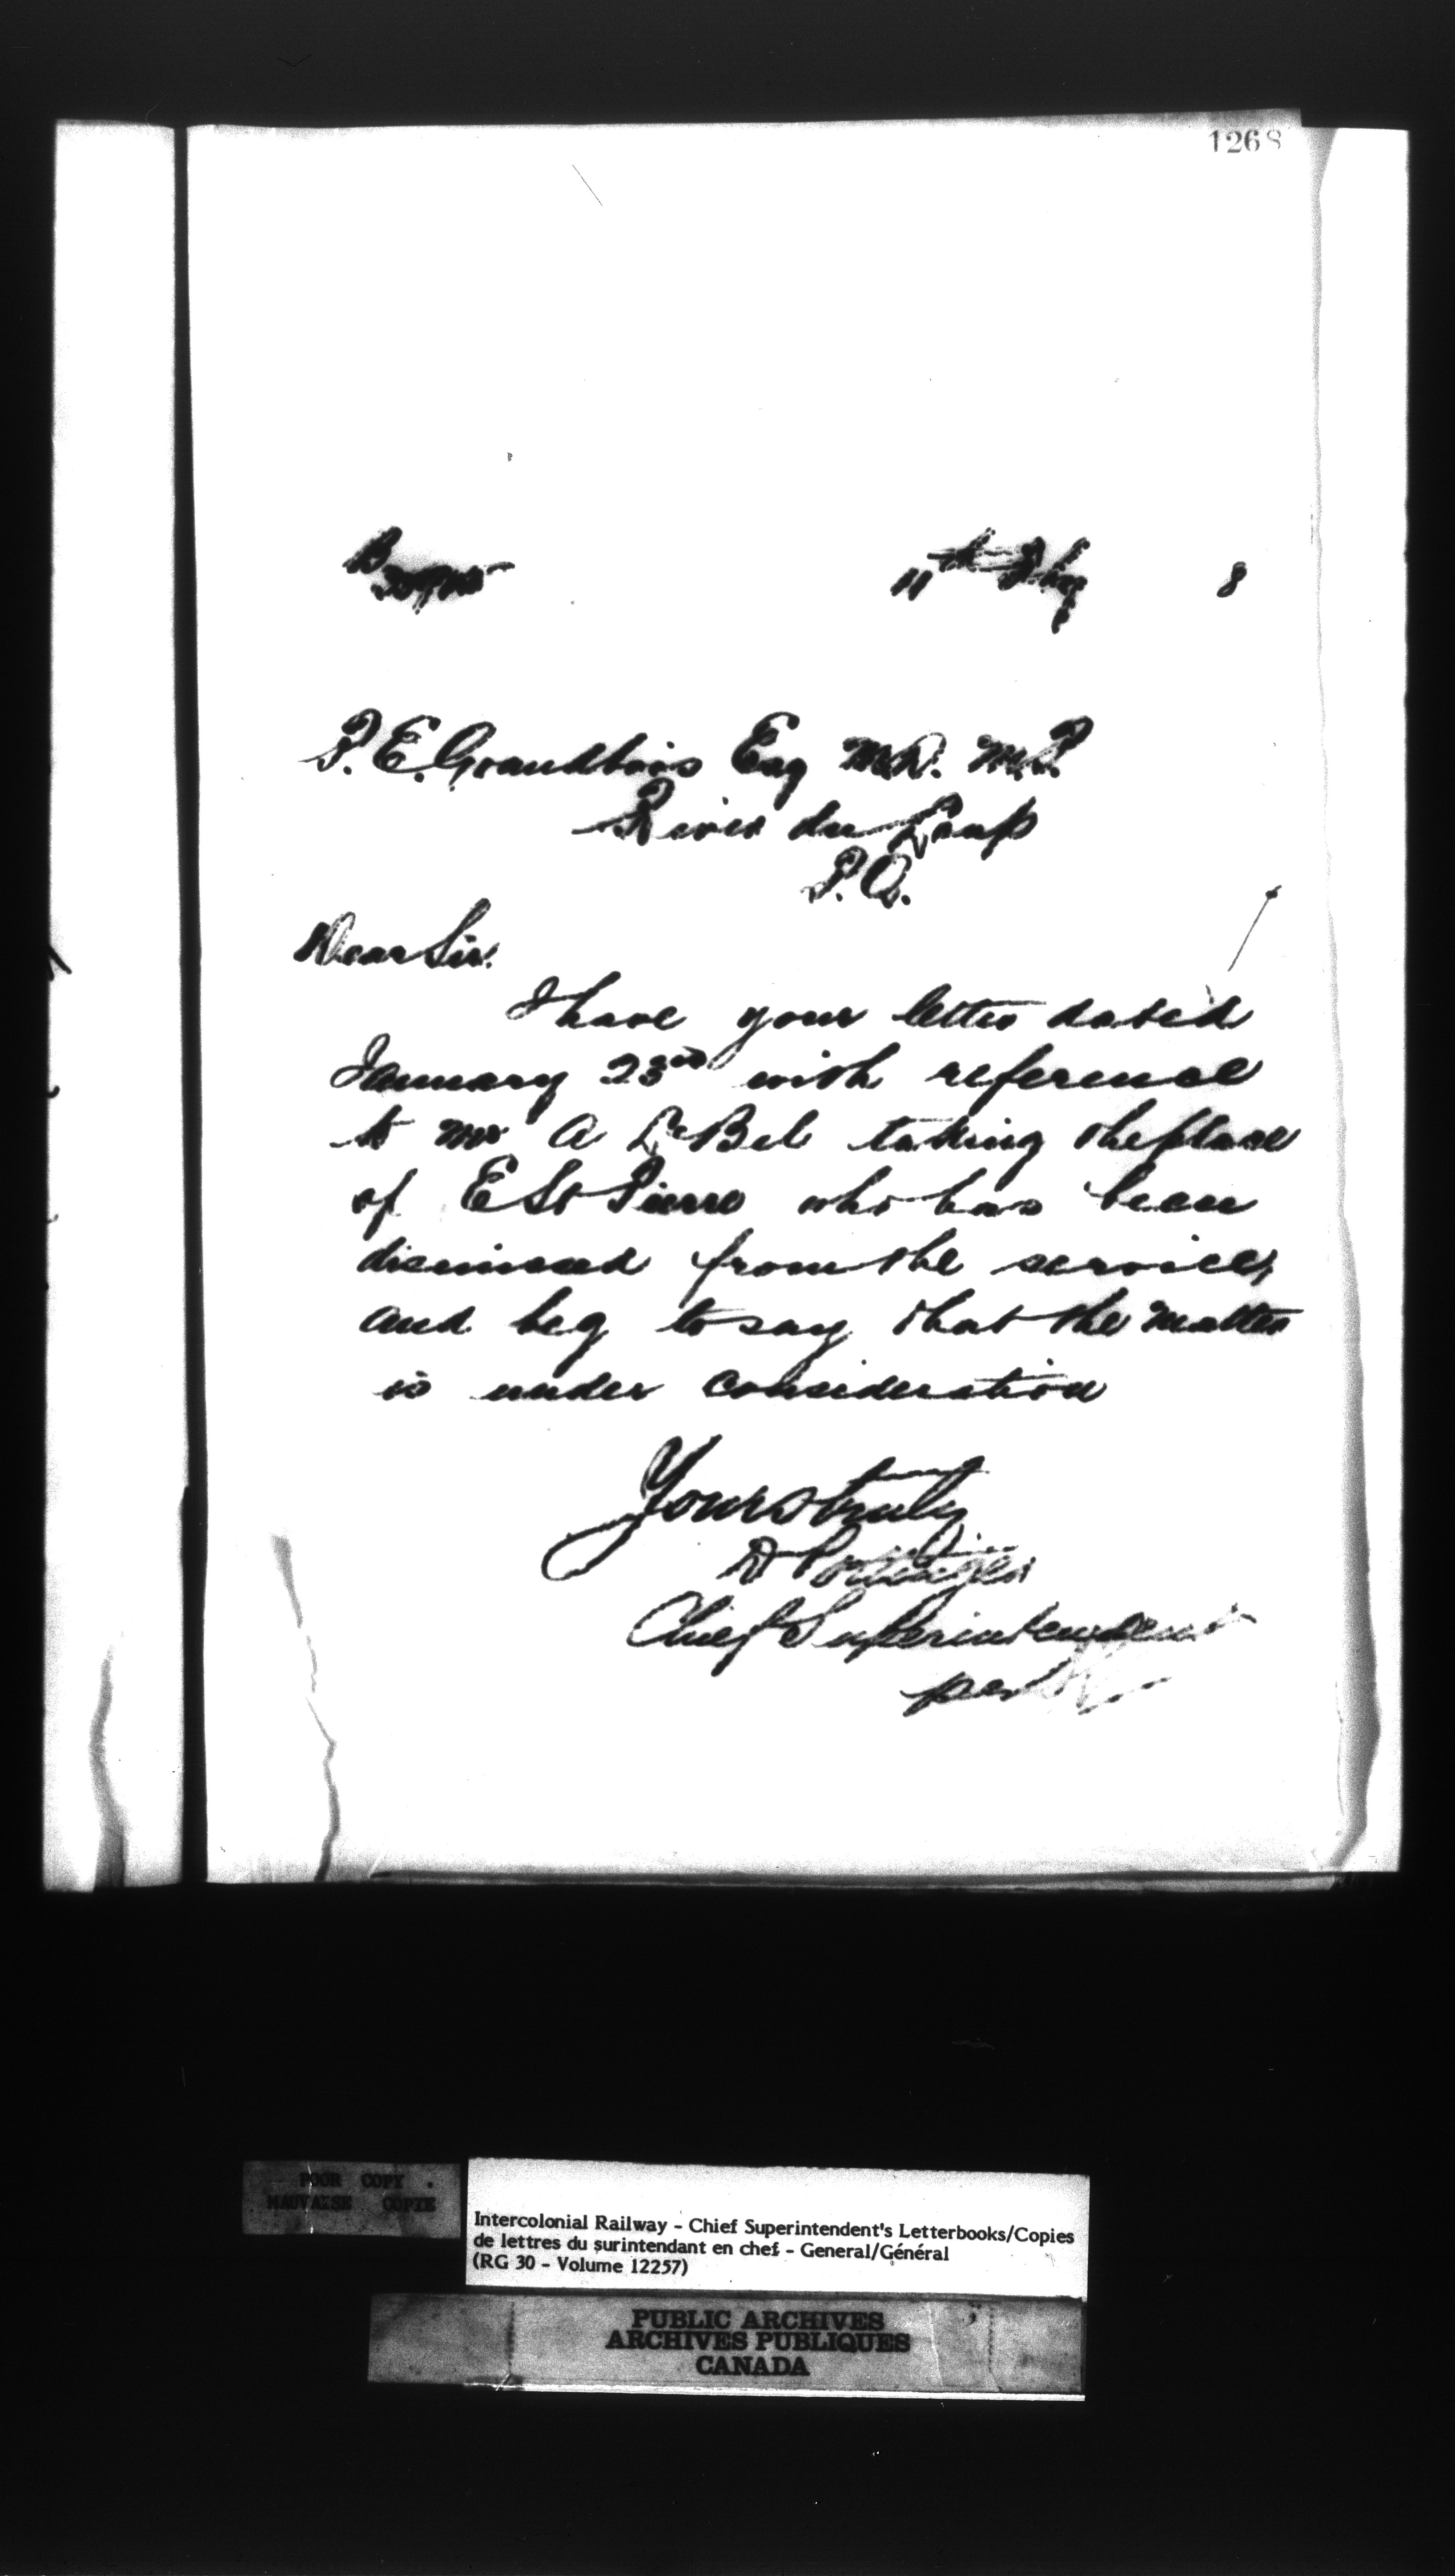 1268
11th Feby 8
P. E. Grandbois Esq M.D. M.P.
River du Loup
P.Q.
Dear Sir.
I have your letter dated
January 23rd with reference
to Mr A LeBel taking the place
of E St Pierre who has been
dismissed from the service,
and beg to say that the matter
is under consideration
Yours truly
D Pottinger
Chief Superintendent
per
POOR COPY
MAUVAISE COPIE
Intercolonial Railway - Chief Superintendent's Letterbooks/Copies
de lettres du surintendant en chef - General/Général
(RG 30 - Volume 12257)
PUBLIC ARCHIVES
ARCHIVES PUBLIQUES
CANADA